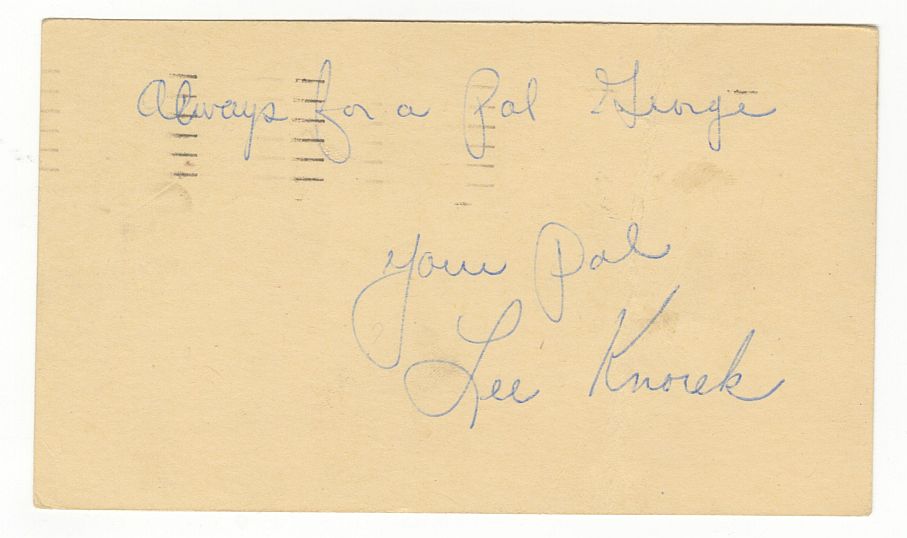 Always for a Pal George
Your Pal
Lee Knorek